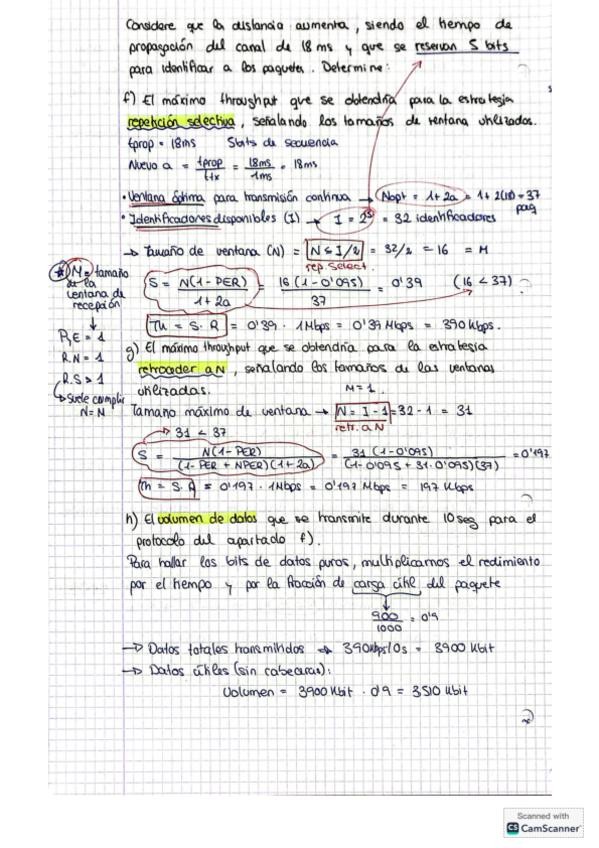 Considere que la distancia aumenta, siendo el tiempo de
propagación del canal de 18 ms y que se reservan 5 bits
para identificar a los paquetes. Determine:
f) El máximo throughput que se obtendría para la estrategia
repetición selectiva, señalando los tamaños de ventana utilizados.
tprop = 18ms   5bits de secuencia
Nuevo a = tprop/ttx = 18ms/1ms = 18ms
• Ventana óptima para transmisión continua → Nopt = 1+2a = 1+2(18) = 37 paq
• Identificadores disponibles (I) → I = 2⁵ = 32 identificadores
→ Tamaño de ventana (N) = N ≤ I/2 = 32/2 = 16 = M
rep. select.
* M = tamaño
de la
ventana de
recepción
P,E = 1
R.N = 1
R.S > 1
↳ Suele cumplir
N = M
S = N(1-PER)/(1+2a) = 16(1-0'095)/37 = 0'39   (16 < 37)
Th = S·R = 0'39 · 1Mbps = 0'39 Mbps = 390 Kbps.
g) El máximo throughput que se obtendría para la estrategia
retroceder a N, señalando los tamaños de las ventanas
utilizadas.   M = 1.
Tamaño máximo de ventana → N = I - 1 = 32 - 1 = 31
retr. a N
→ 31 < 37
S = N(1-PER)/((1-PER + NPER)(1+2a)) = 31(1-0'095)/((1-0'095 + 31·0'095)(37)) = 0'197
Th = S·R = 0'197 · 1Mbps = 0'197 Mbps = 197 Kbps
h) El volumen de datos que se transmite durante 10 seg para el
protocolo del apartado f).
Para hallar los bits de datos puros, multiplicamos el redimiento
por el tiempo y por la fracción de carga útil del paquete
900/1000 = 0'9
→ Datos totales transmitidos → 390Kbps·10s = 3900 Kbit
→ Datos útiles (sin cabeceras):
Volumen = 3900 Kbit · 0'9 = 3510 Kbit
Scanned with
CS CamScanner